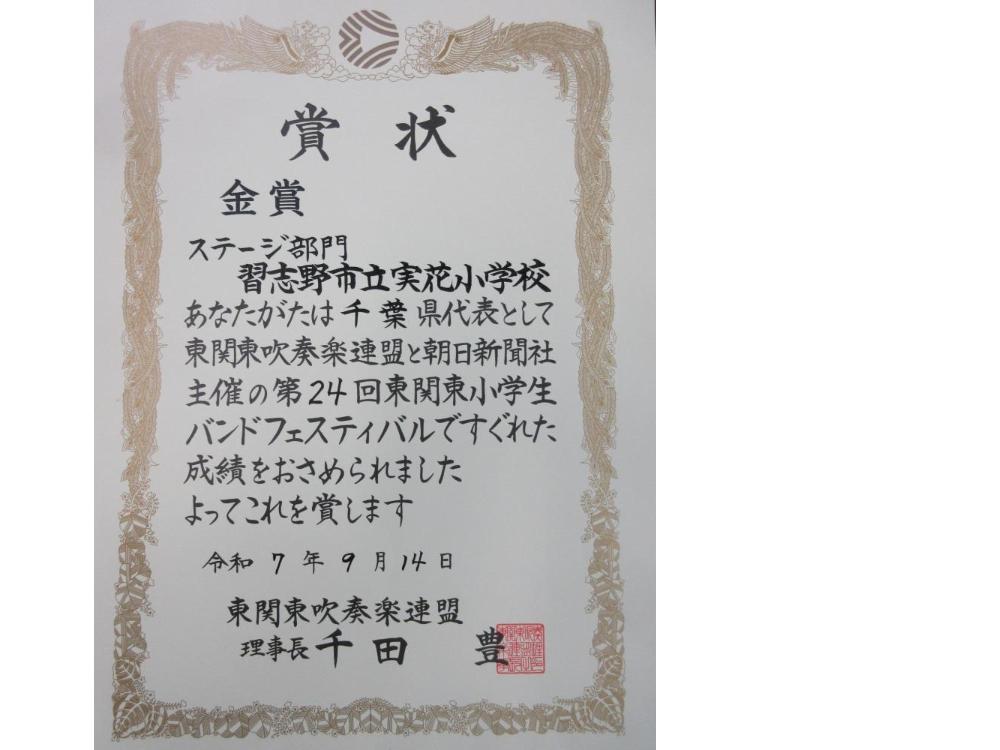 賞 状
金賞
ステージ部門
習志野市立実花小学校
あなたがたは千葉県代表として
東関東吹奏楽連盟と朝日新聞社
主催の第24回東関東小学生
バンドフェスティバルですぐれた
成績をおさめられました
よってこれを賞します
令和 7 年 9 月 14 日
東関東吹奏楽連盟
理事長 千田 豊